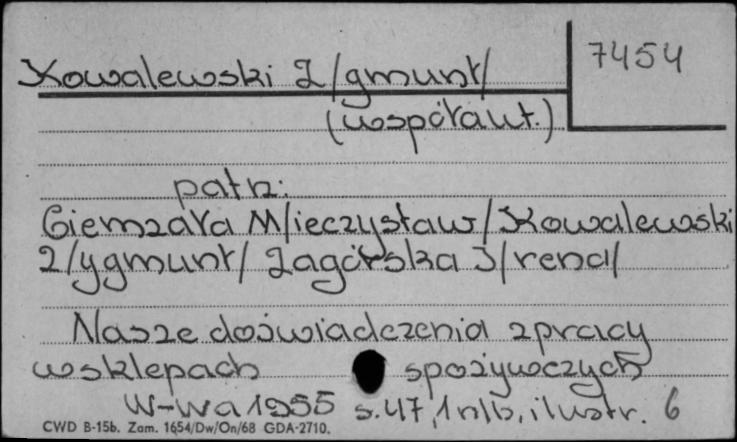 7454
Kowalewski Z/gmunt/
(współaut.)
patrz:
Ciemzała M/ieczysław/ Kowalewski
Z/ygmunt/ Zagórska I/rena/
Nasze doświadczenia z pracy
w sklepach spożywczych
W-wa 1955 s. 47, 1 nlb, ilustr. 6
CWD B-15b. Zam. 1654/Dw/On/68 GDA-2710.